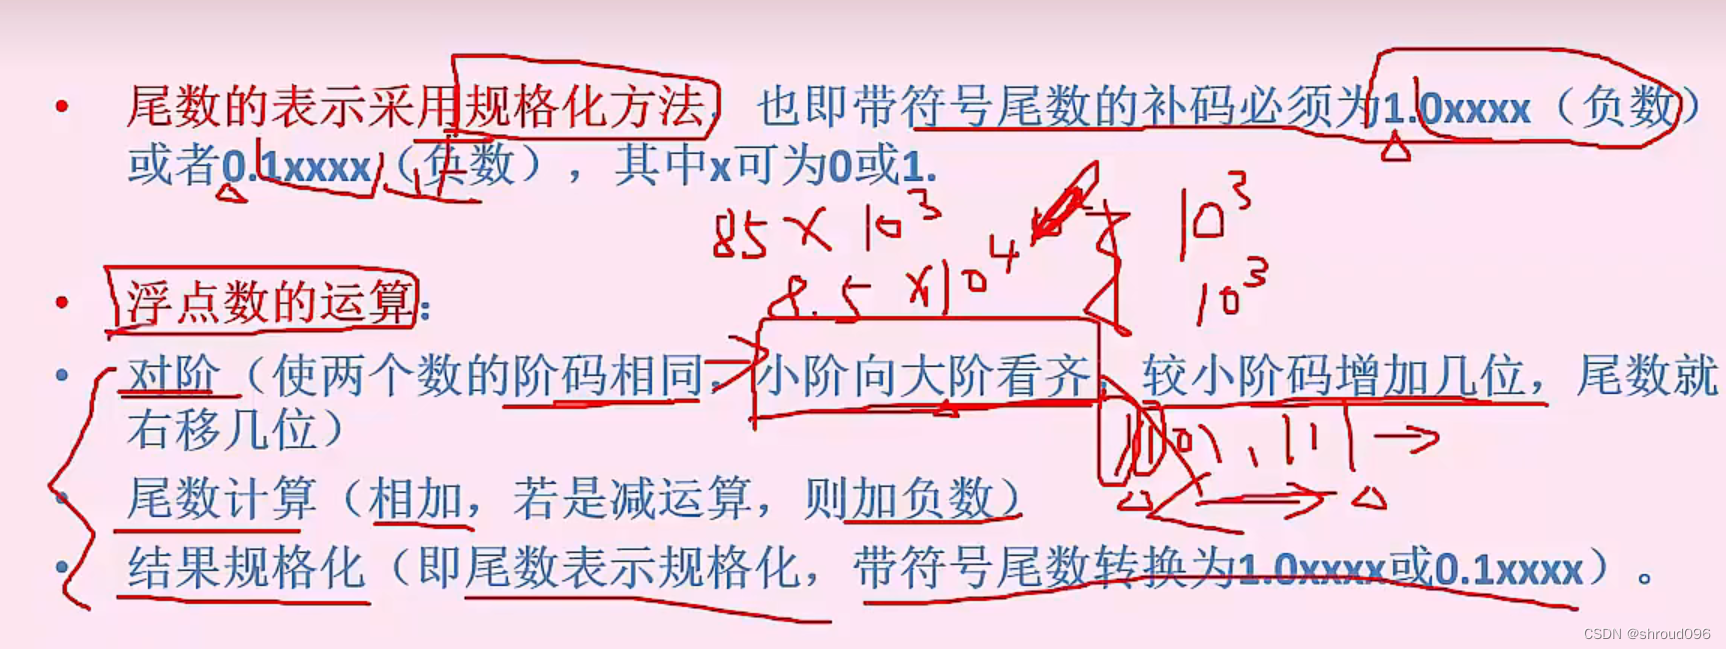 • 尾数的表示采用规格化方法，也即带符号尾数的补码必须为1.0xxxx（负数）
或者0.1xxxx（负数），其中x可为0或1.
85 × 10³
10³
8.5 ×10⁴
10³
• 浮点数的运算：
• 对阶（使两个数的阶码相同，小阶向大阶看齐，较小阶码增加几位，尾数就
右移几位）
• 尾数计算（相加，若是减运算，则加负数）
• 结果规格化（即尾数表示规格化，带符号尾数转换为1.0xxxx或0.1xxxx）。
CSDN @shroud096